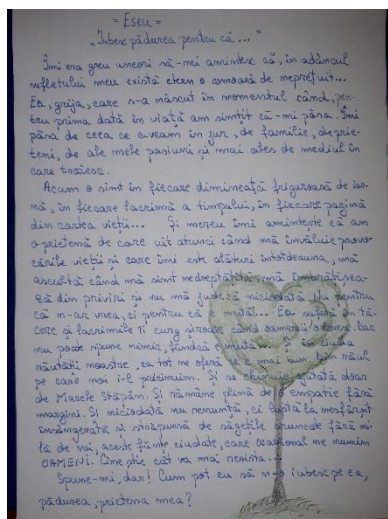 = Eseu =
„Iubesc pădurea pentru că..."
Îmi era greu uneori să-mi amintesc că, în adâncul
sufletului meu există etern o comoară de neprețuit...
Ea, grija, care s-a născut în momentul când, pen-
tru prima dată în viață am simțit că-mi pasă. Îmi
păsa de ceea ce aveam în jur, de familie, de prie-
teni, de ale mele pasiuni și mai ales de mediul în
care trăiesc.
Acum o simt în fiecare dimineață friguroasă de iar-
nă, în fiecare lacrimă a timpului, în fiecare pagină
din cartea vieții... Și mereu îmi amintește că am
o prietenă de care uit atunci când mă învăluie provo-
cările vieții și care îmi este alături întotdeauna, mă
ascultă când mă simt nedreptățită, mă îmbrățișea-
ză din priviri și nu mă judecă niciodată. Nu pentru
că n-ar vrea, ci pentru că e mută... Ea suferă în tă-
cere și lacrimile îi curg șiroaie când oamenii o
nu poate spune nimic, fiindcă e mută... Și în ciuda
răutății noastre, ea tot ne oferă ce e mai bun, din răul
pe care noi i-l pricinuim. Și se chinuie ajutată doar
de Marele Stăpân. Și rămâne plină de o empatie fără
margini. Și niciodată nu renunță, ci luptă la nesfârșit
însângerată și străpunsă de săgețile aruncate fără mi-
lă de noi, aceste ființe ciudate, care ocazional ne numim
OAMENI. Cine știe cât va mai rezista...
Spune-mi, dar! Cum pot eu să n-o iubesc pe ea,
pădurea, prietena mea?